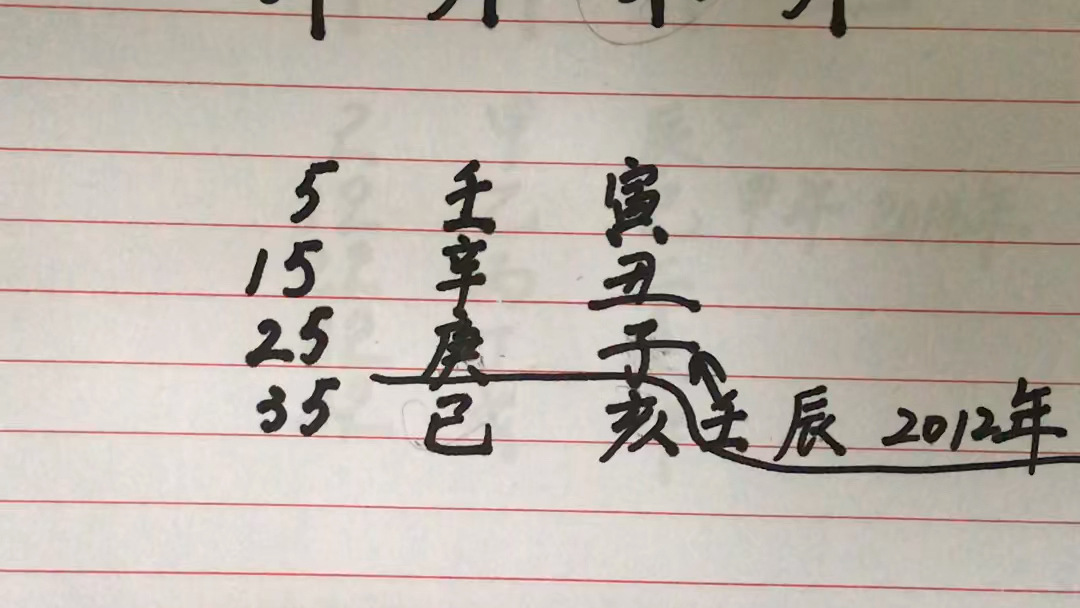 5 壬 寅
15 辛 丑
25 庚 子
35 己 亥 壬 辰 2012年